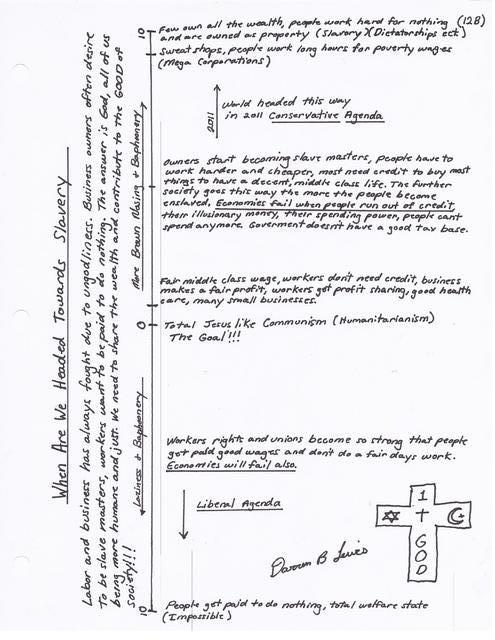 When Are We Headed Towards Slavery
Labor and business has always fought due to ungodliness. Business owners often desire
To be slave masters, workers want to be paid to do nothing. The answer is God, all of us
being more humane and just. We need to share the wealth and contribute to the GOOD of
society!!!
More Brown Nosing + Baphoonery
Laziness + Baphoonery
(12B)
10
Few own all the wealth, people work hard for nothing
and are owned as property (Slavery)(Dictatorships ect.)
Sweat shops, people work long hours for poverty wages
(Mega Corporations)
2011
World headed this way
in 2011 Conservative Agenda
Owners start becoming slave masters, people have to
work harder and cheaper, most need credit to buy most
things to have a decent, middle class life. The further
society goes this way the more the people become
enslaved. Economies fail when people run out of credit,
their illusionary money, their spending power, people cant
spend anymore. Goverment doesn't have a good tax base.
Fair middle class wage, workers don't need credit, business
makes a fair profit, workers get profit sharing, good health
care, many small businesses.
0
Total Jesus like Communism (Humanitarianism)
The Goal!!!
Workers rights and unions become so strong that people
get paid good wages and don't do a fair days work.
Economies will fail also.
Liberal Agenda
Darren B Lewis
1
G
O
D
10
People get paid to do nothing, total welfare state
(Impossible)